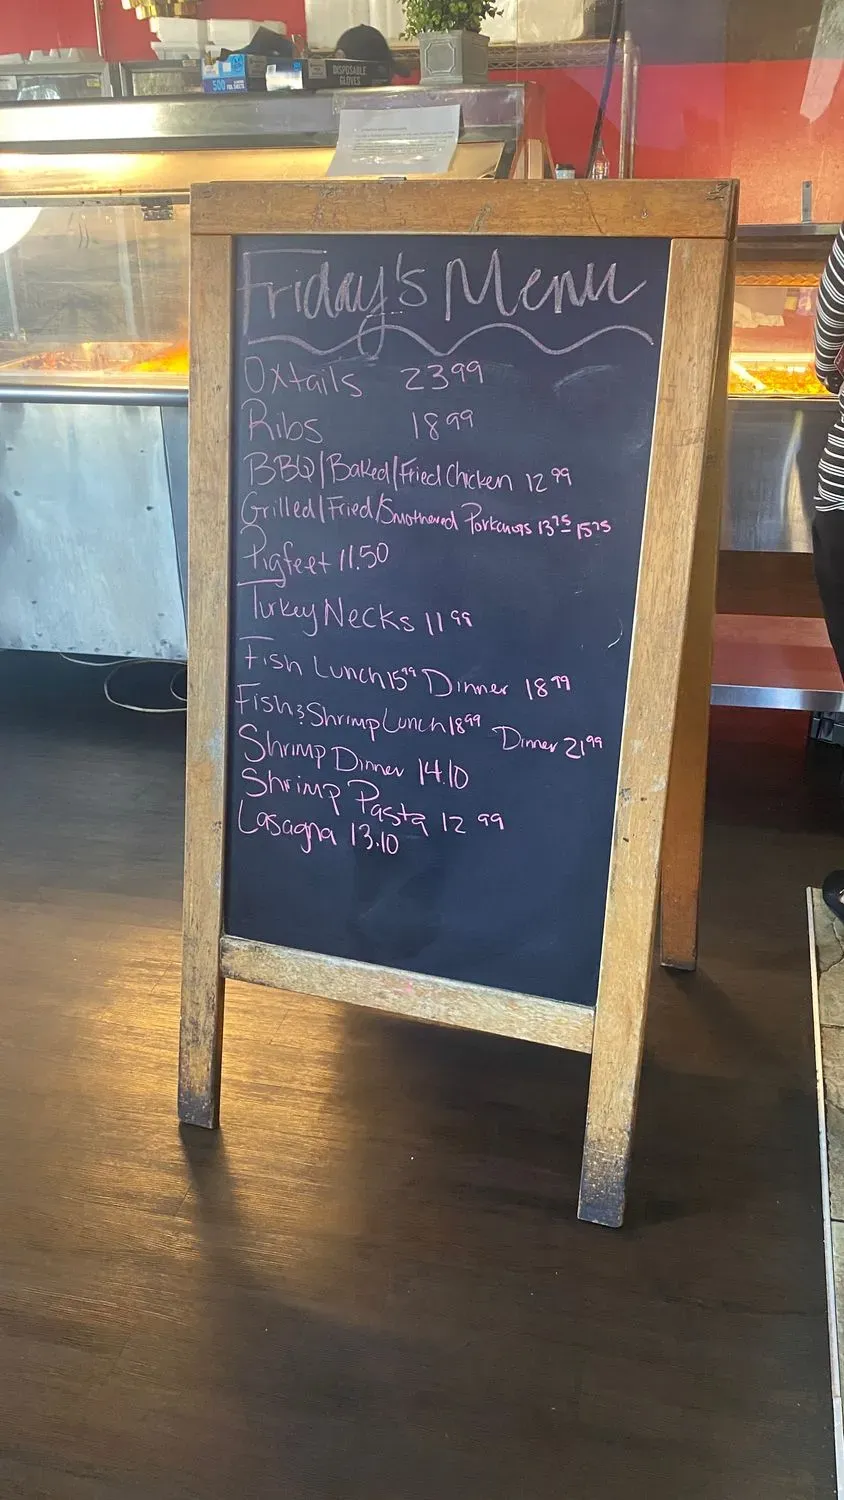 500
DISPOSABLE
GLOVES
Friday's Menu
Oxtails 23 99
Ribs 18 99
BBQ/Baked/Fried Chicken 12 99
Grilled/Fried/Smothered Porkchops 13 75 15 75
Pigfeet 11.50
Turkey Necks 11 99
Fish Lunch 15 99 Dinner 18 99
Fish & Shrimp Lunch 18 99 Dinner 21 99
Shrimp Dinner 14.10
Shrimp Pasta 12 99
Lasagna 13.10